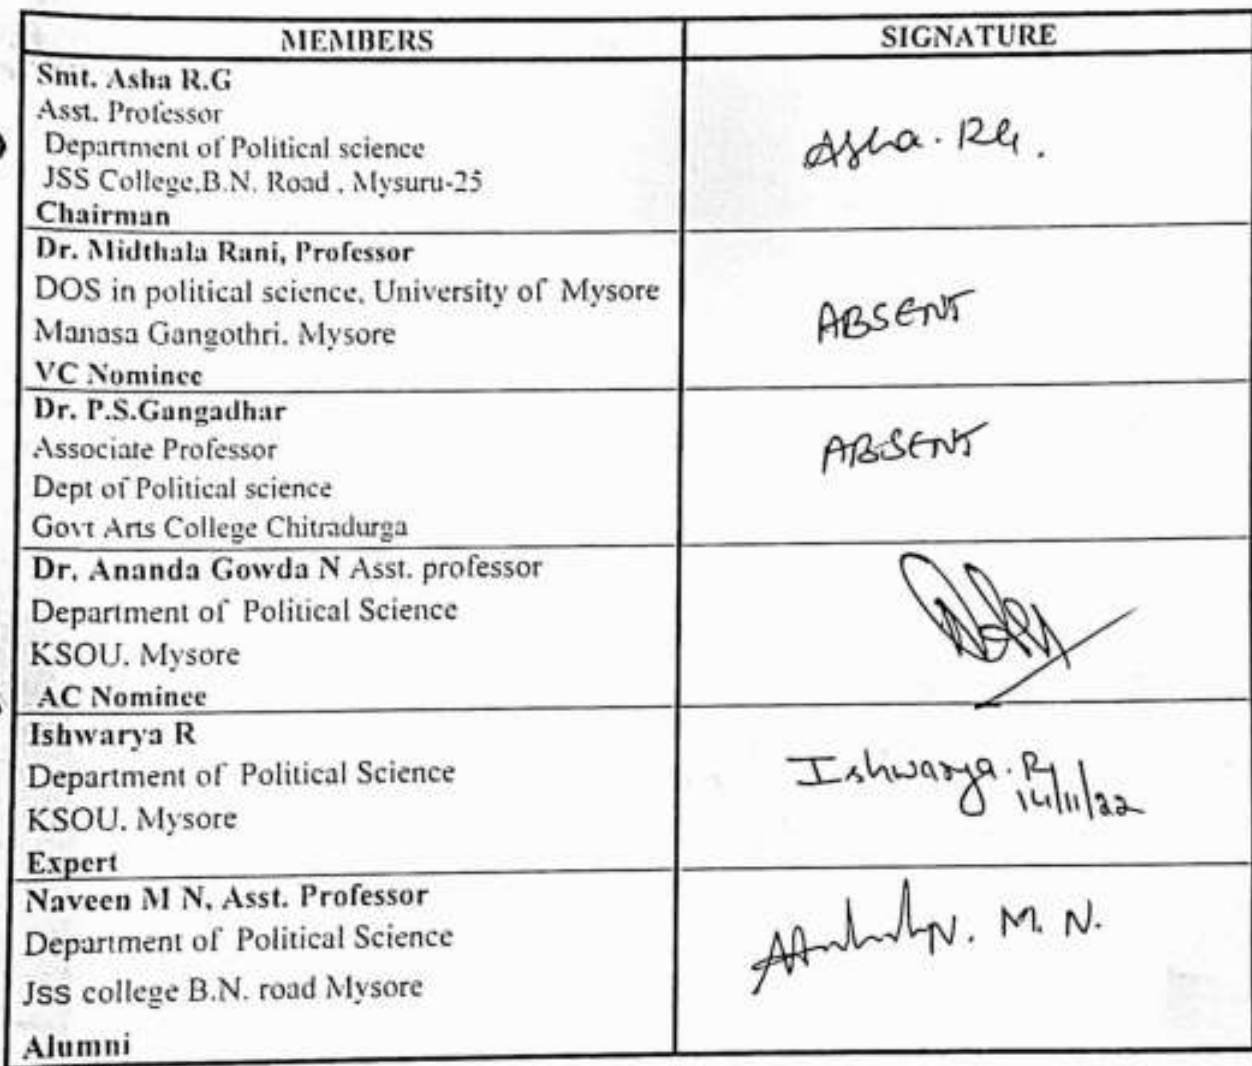 MEMBERS
SIGNATURE
Smt. Asha R.G
Asst. Professor
Department of Political science
JSS College,B.N. Road , Mysuru-25
Chairman
Asha. RG.
Dr. Midthala Rani, Professor
DOS in political science, University of Mysore
Manasa Gangothri. Mysore
VC Nominee
ABSENT
Dr. P.S.Gangadhar
Associate Professor
Dept of Political science
Govt Arts College Chitradurga
ABSENT
Dr. Ananda Gowda N Asst. professor
Department of Political Science
KSOU. Mysore
AC Nominee
Ishwarya R
Department of Political Science
KSOU. Mysore
Expert
Ishwarya. R
14/11/22
Naveen M N, Asst. Professor
Department of Political Science
Jss college B.N. road Mysore
Alumni
M. N.